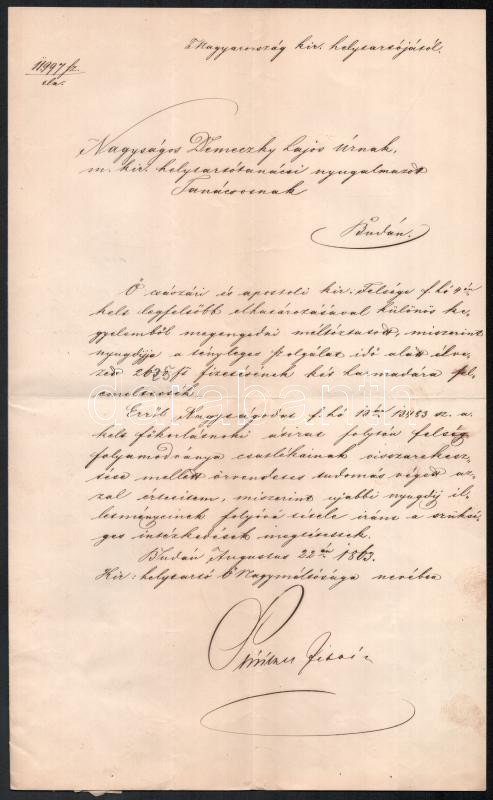 Magyarország kir. helytartójától.
11997 sz.
eln.
Nagyságos Demeczky Lajos Úrnak,
m. kir. helytartótanácsi nyugalmazott
Tanácsosnak
Budán.
Ő császári és apostoli kir: Felsége f. hó 4én
kelt legfelsőbb elhatározásával különös ke-
gyelemből megengedni méltóztatott, miszerint
nyugdíjja a tényleges szolgálat idő alatt élve-
zett 2625 ft fizetésének két harmadára fel-
emeltessék.
Erről Nagyságodat f. hó 18án 13483 sz. a.
kelt főkorlátnoki átirat folytán felség
folyamodványa csatlékainak visszarekesz-
tése mellett örvendetes tudomás végett az-
zal értesitem, miszerint ujabbi nyugdij il-
letményeinek folyóvá tétele iránt a szüksé-
ges intézkedések megtétessek.
Budán Augustus 22én 1863.
Kir: helytartó Ő Nagyméltósága nevében
databanth